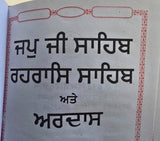 ਜਪੁ ਜੀ ਸਾਹਿਬ
ਰਹਰਾਸਿ ਸਾਹਿਬ
ਅਤੇ
ਅਰਦਾਸ